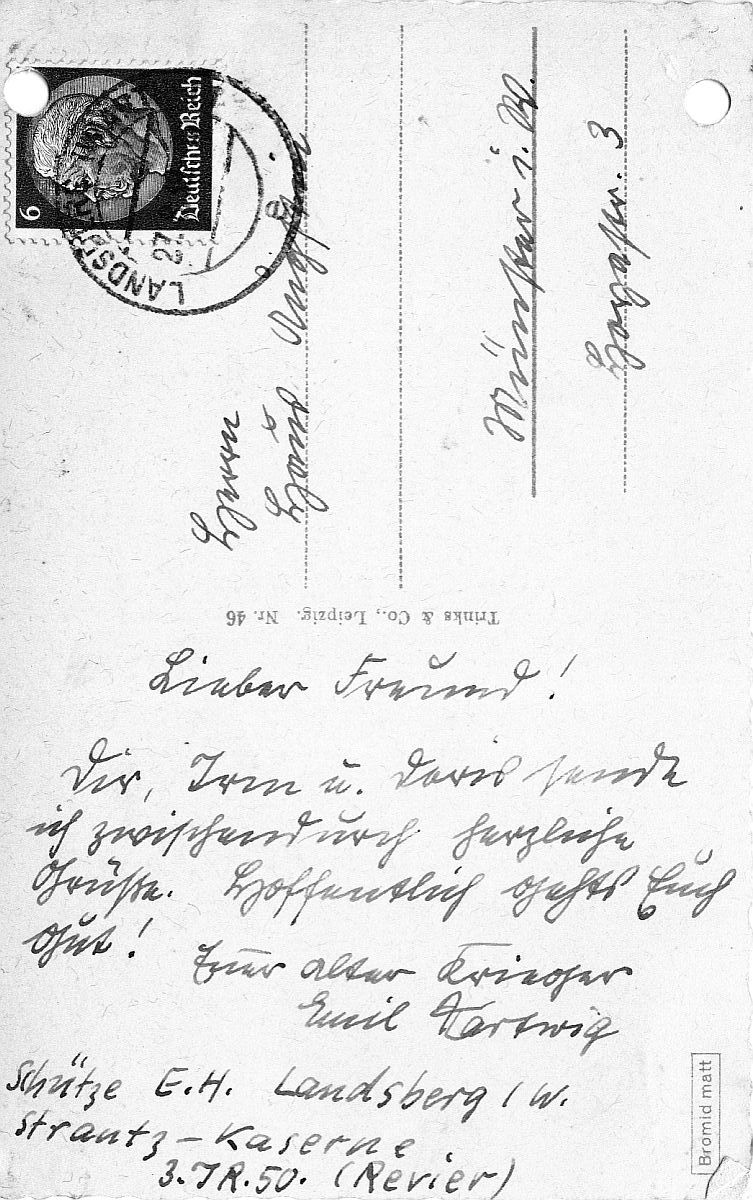 Lieber Freund!
Dir, Irm u. Doris sende
ich zwischendurch herzliche
Grüße. Hoffentlich gehts Euch
gut!
Euer alter Krieger
Emil Hartwig
Schütze E.H. Landsberg / W.
Strantz-Kaserne
3. IR. 50. (Revier)
Trinks & Co., Leipzig. Nr. 46
Herrn
Hans
Münster i. W.
3
Deutsches Reich
6
LANDSBERG
27
e
Bromid matt